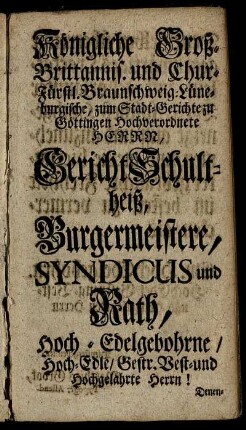 Königliche Groß-
Brittannis. und Chur-
Fürstl. Braunschweig-Lüne-
burgische, zum Stadt-Gerichte zu
Göttingen Hochverordnete
HERRN,
Gericht Schult-
heiß,
Burgermeistere,
SYNDICUS und
Rath,
Hoch-Edelgebohrne/
Hoch-Edle/ Gestr. Vest- und
Hochgelahrte Herrn!
Denen-